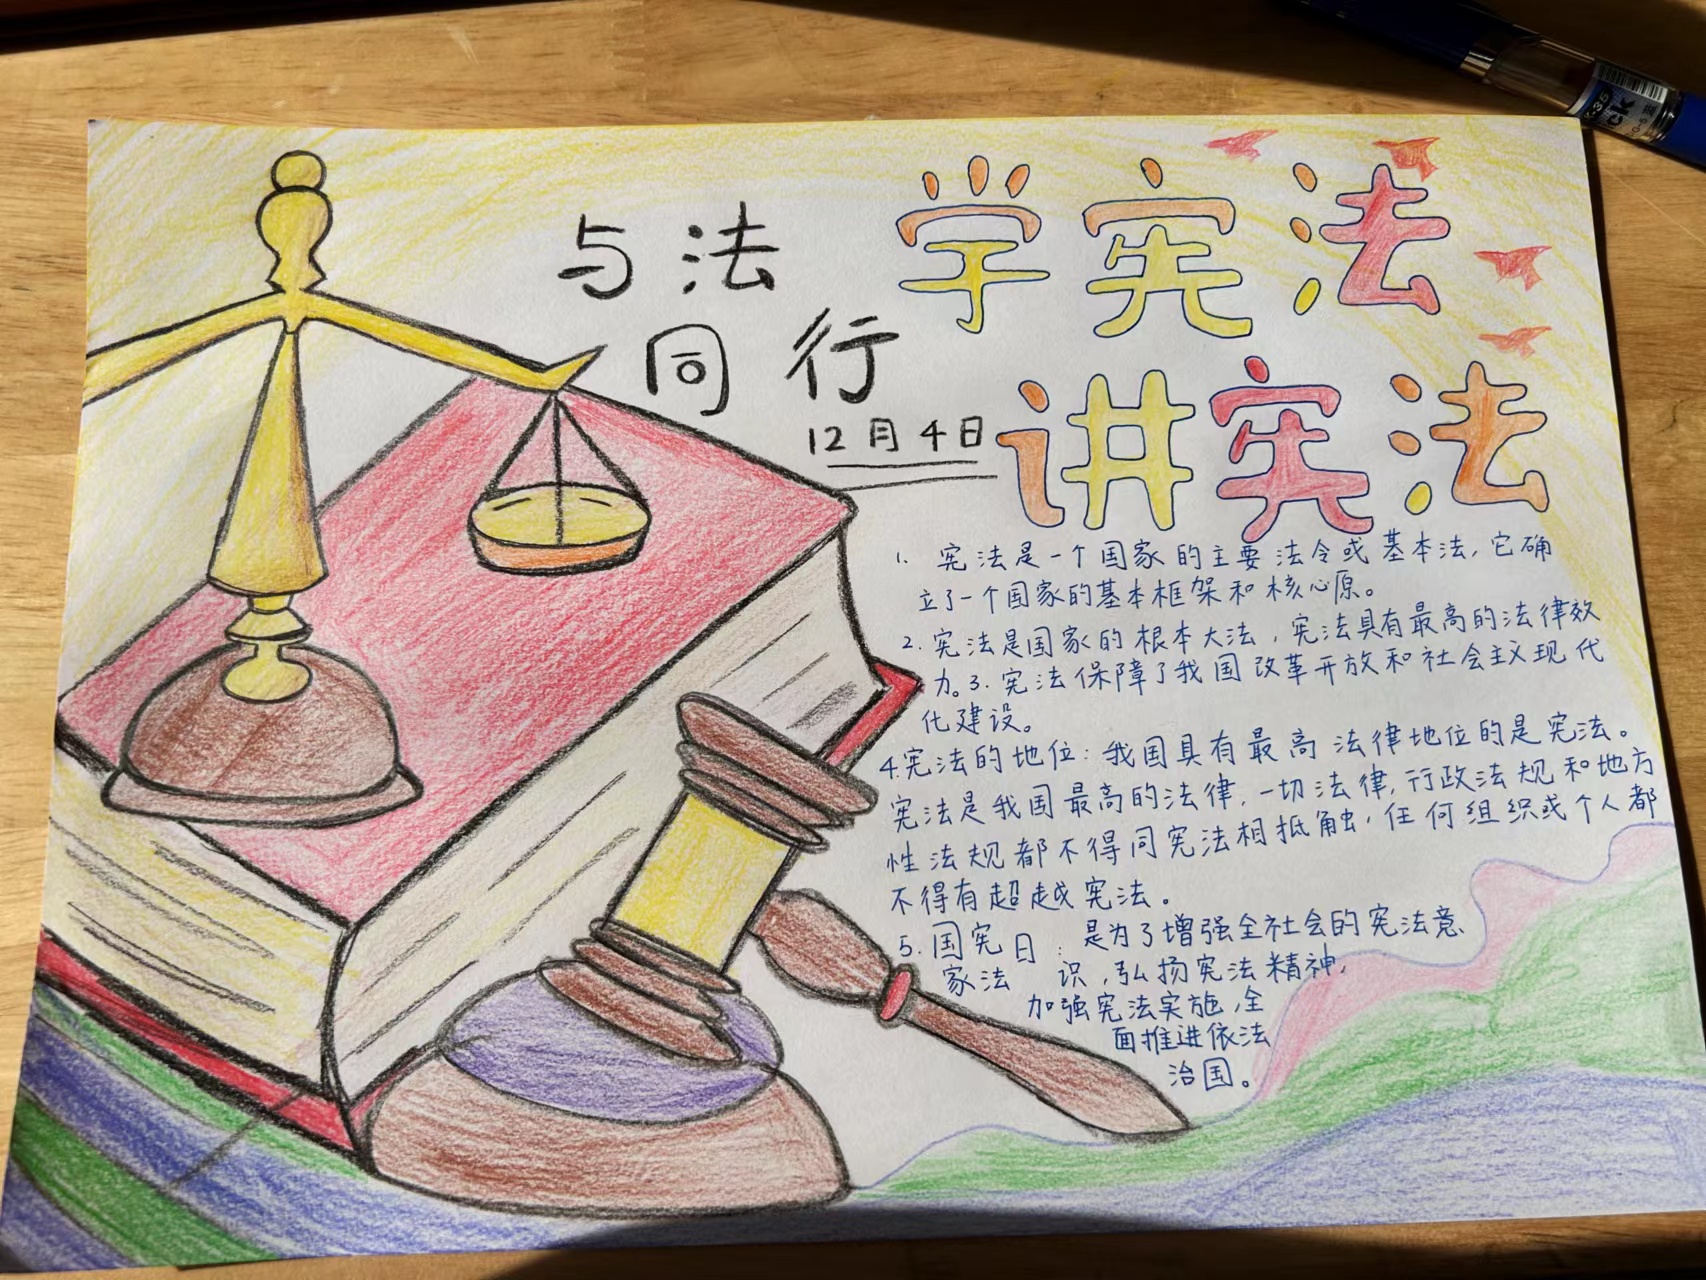 学宪法
讲宪法
与法
同行
12月4日
1. 宪法是一个国家的主要法令或基本法，它确
立了一个国家的基本框架和核心原。
2. 宪法是国家的根本大法，宪法具有最高的法律效
力。3. 宪法保障了我国改革开放和社会主义现代
化建设。
4.宪法的地位：我国具有最高法律地位的是宪法。
宪法是我国最高的法律，一切法律，行政法规和地方
性法规都不得同宪法相抵触，任何组织或个人都
不得有超越宪法。
5. 国宪日：是为了增强全社会的宪法意
家法 识，弘扬宪法精神，
加强宪法实施，全
面推进依法
治国。